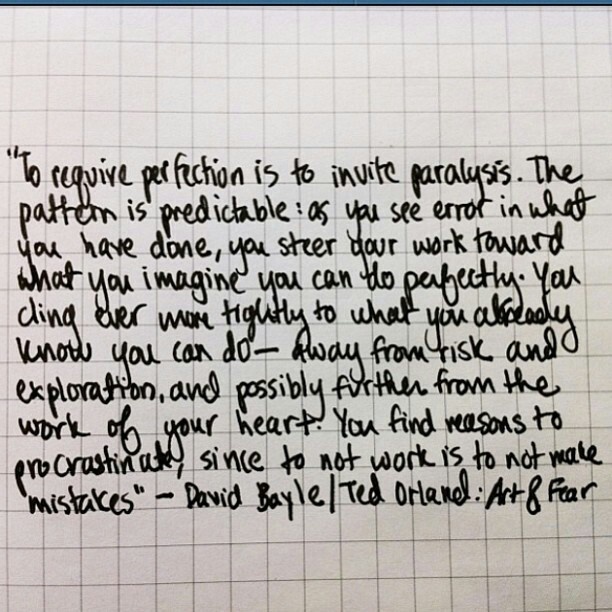 "To require perfection is to invite paralysis. The
pattern is predictable: as you see error in what
you have done, you steer your work toward
what you imagine you can do perfectly. You
cling ever more tightly to what you already
know you can do — away from risk and
exploration, and possibly further from the
work of your heart. You find reasons to
procrastinate, since to not work is to not make
mistakes" – David Bayle/Ted Orland: Art & Fear